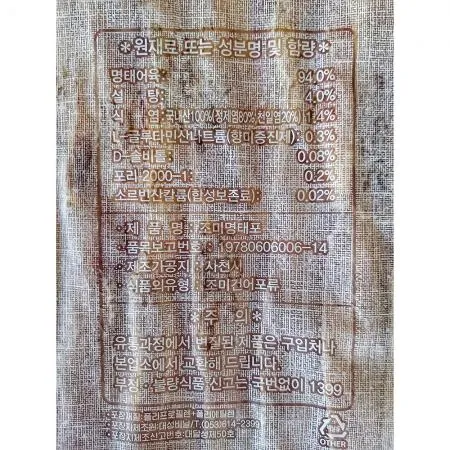 *원재료 또는 성분명 및 함량*
명태어육: 94.0%
설 탕: 4.0%
식 염: 국내산100%(정제염80%, 천일염20%) 1.4%
L-글루타민산나트륨(향미증진제): 0.3%
D-솔비톨: 0.08%
포리 2000-1: 0.2%
소르빈산칼륨(합성보존료): 0.02%
· 제 품 명 : 조미명태포
· 품목보고번호: 19780606006-14
· 제조가공지 : 사천시
· 식품의유형 : 조미건어포류
*주 의*
유통과정에서 변질된 제품은 구입처나
본업소에서 교환해 드립니다.
부정·불량식품 신고는 국번없이 1399
· 포장재질: 폴리프로필렌+폴리에틸렌
· 포장지제조원: 대성비닐/T.(053)614-2399
· 포장지제조신고번호: 대달성제50호
OTHER